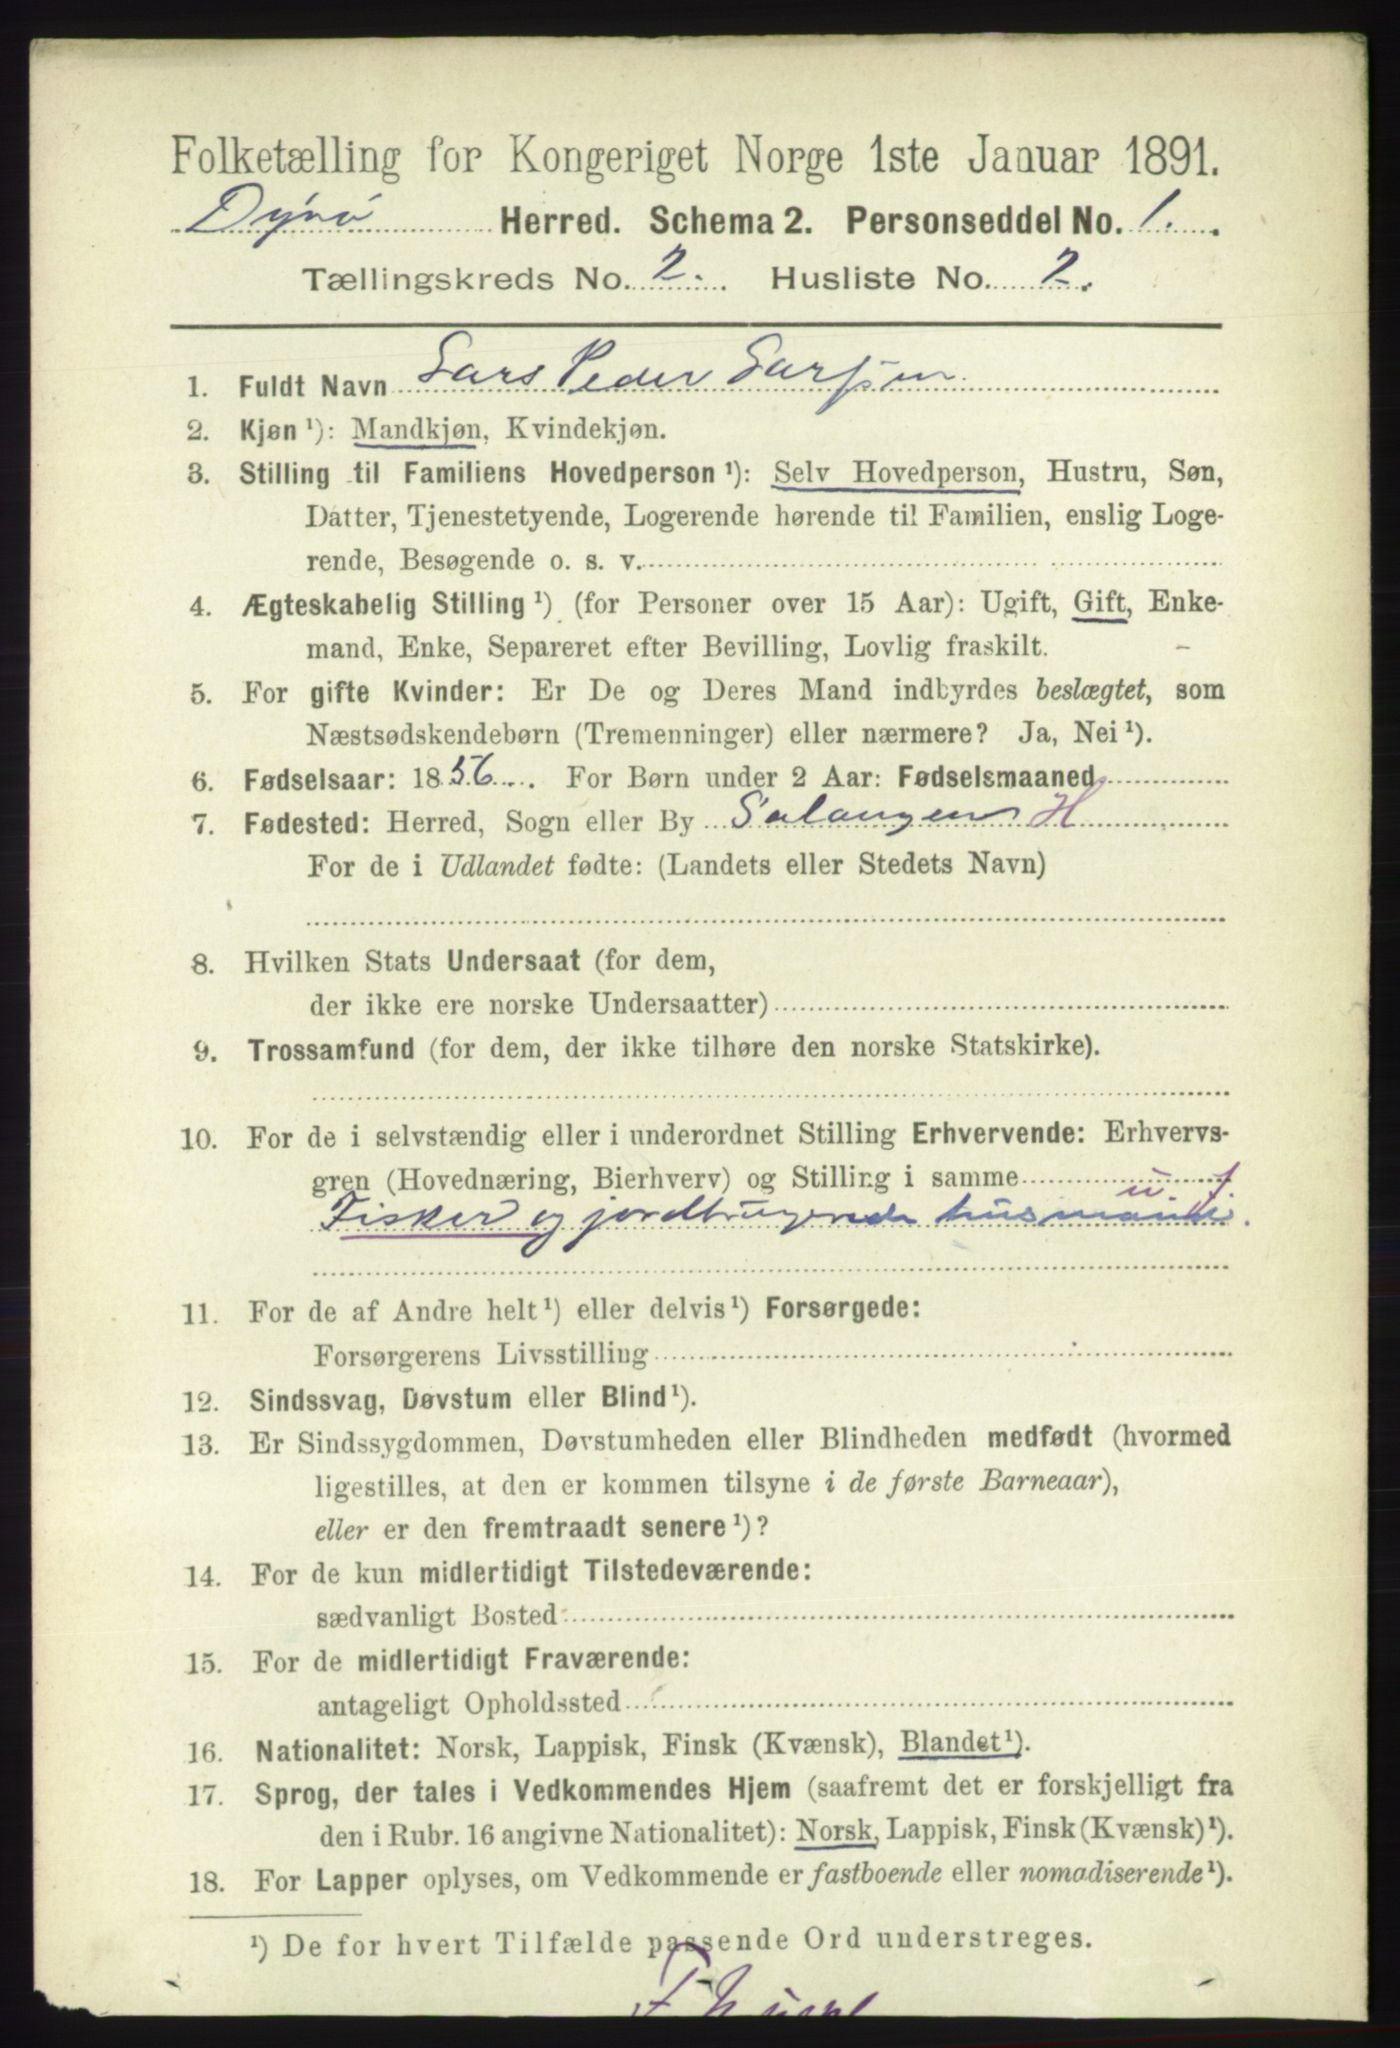 Folketælling for Kongeriget Norge 1ste Januar 1891.
Dyrø Herred. Schema 2. Personseddel No. 1.
Tællingskreds No. 2. Husliste No. 2.
1. Fuldt Navn Lars Peder Larsen
2. Kjøn ¹): Mandkjøn, Kvindekjøn.
3. Stilling til Familiens Hovedperson ¹): Selv Hovedperson, Hustru, Søn,
Datter, Tjenestetyende, Logerende hørende til Familien, enslig Loge-
rende, Besøgende o. s. v.
4. Ægteskabelig Stilling ¹) (for Personer over 15 Aar): Ugift, Gift, Enke-
mand, Enke, Separeret efter Bevilling, Lovlig fraskilt.
5. For gifte Kvinder: Er De og Deres Mand indbyrdes beslægtet, som
Næstsødskendebørn (Tremenninger) eller nærmere? Ja, Nei ¹).
6. Fødselsaar: 1856. For Børn under 2 Aar: Fødselsmaaned
7. Fødested: Herred, Sogn eller By Salangen H
For de i Udlandet fødte: (Landets eller Stedets Navn)
8. Hvilken Stats Undersaat (for dem,
der ikke ere norske Undersaatter)
9. Trossamfund (for dem, der ikke tilhøre den norske Statskirke).
10. For de i selvstændig eller i underordnet Stilling Erhvervende: Erhvervs-
gren (Hovednæring, Bierhverv) og Stilling i samme
u. j.
Fisker og jordbrugende husmand.
11. For de af Andre helt ¹) eller delvis ¹) Forsørgede:
Forsørgerens Livsstilling
12. Sindssvag, Døvstum eller Blind ¹).
13. Er Sindssygdommen, Døvstumheden eller Blindheden medfødt (hvormed
ligestilles, at den er kommen tilsyne i de første Barneaar),
eller er den fremtraadt senere ¹)?
14. For de kun midlertidigt Tilstedeværende:
sædvanligt Bosted
15. For de midlertidigt Fraværende:
antageligt Opholdssted
16. Nationalitet: Norsk, Lappisk, Finsk (Kvænsk), Blandet ¹).
17. Sprog, der tales i Vedkommendes Hjem (saafremt det er forskjelligt fra
den i Rubr. 16 angivne Nationalitet): Norsk, Lappisk, Finsk (Kvænsk) ¹).
18. For Lapper oplyses, om Vedkommende er fastboende eller nomadiserende ¹).
¹) De for hvert Tilfælde passende Ord understreges.